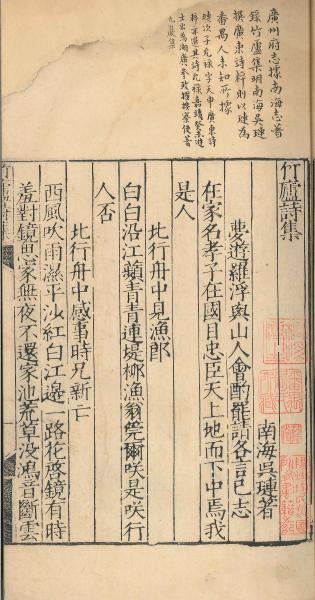 廣州府志據南海志著
錄竹廬集明南海吳璉
撰廣東詩粹則以璉為
番禺人未知所據
璉次子允祿字天申廣東詩
粹亦選其詩允祿嘉靖癸未進
士出為湖廣參政擢按察使著
九巖集
竹廬詩集
南海吳璉著
夢遊羅浮與山人會酌罷請各言已志
在家名孝子在國目忠臣天上地而下中焉我
是人
北行舟中見漁郎
白白沿江蘋青青連堤栁漁翁莞爾咲是咲行
人否
北行舟中感事時兄新亡
西風吹雨濕平沙紅白江邊一路花啓鏡有時
羞對鏡思家無夜不還家池荒草没鴻音斷雲
竹廬詩集